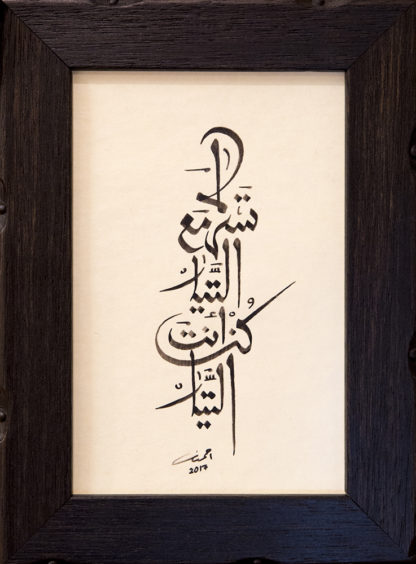 لا
تَسر مَع
التَّيار
كُنْ أنتَ
التَّيار
2017